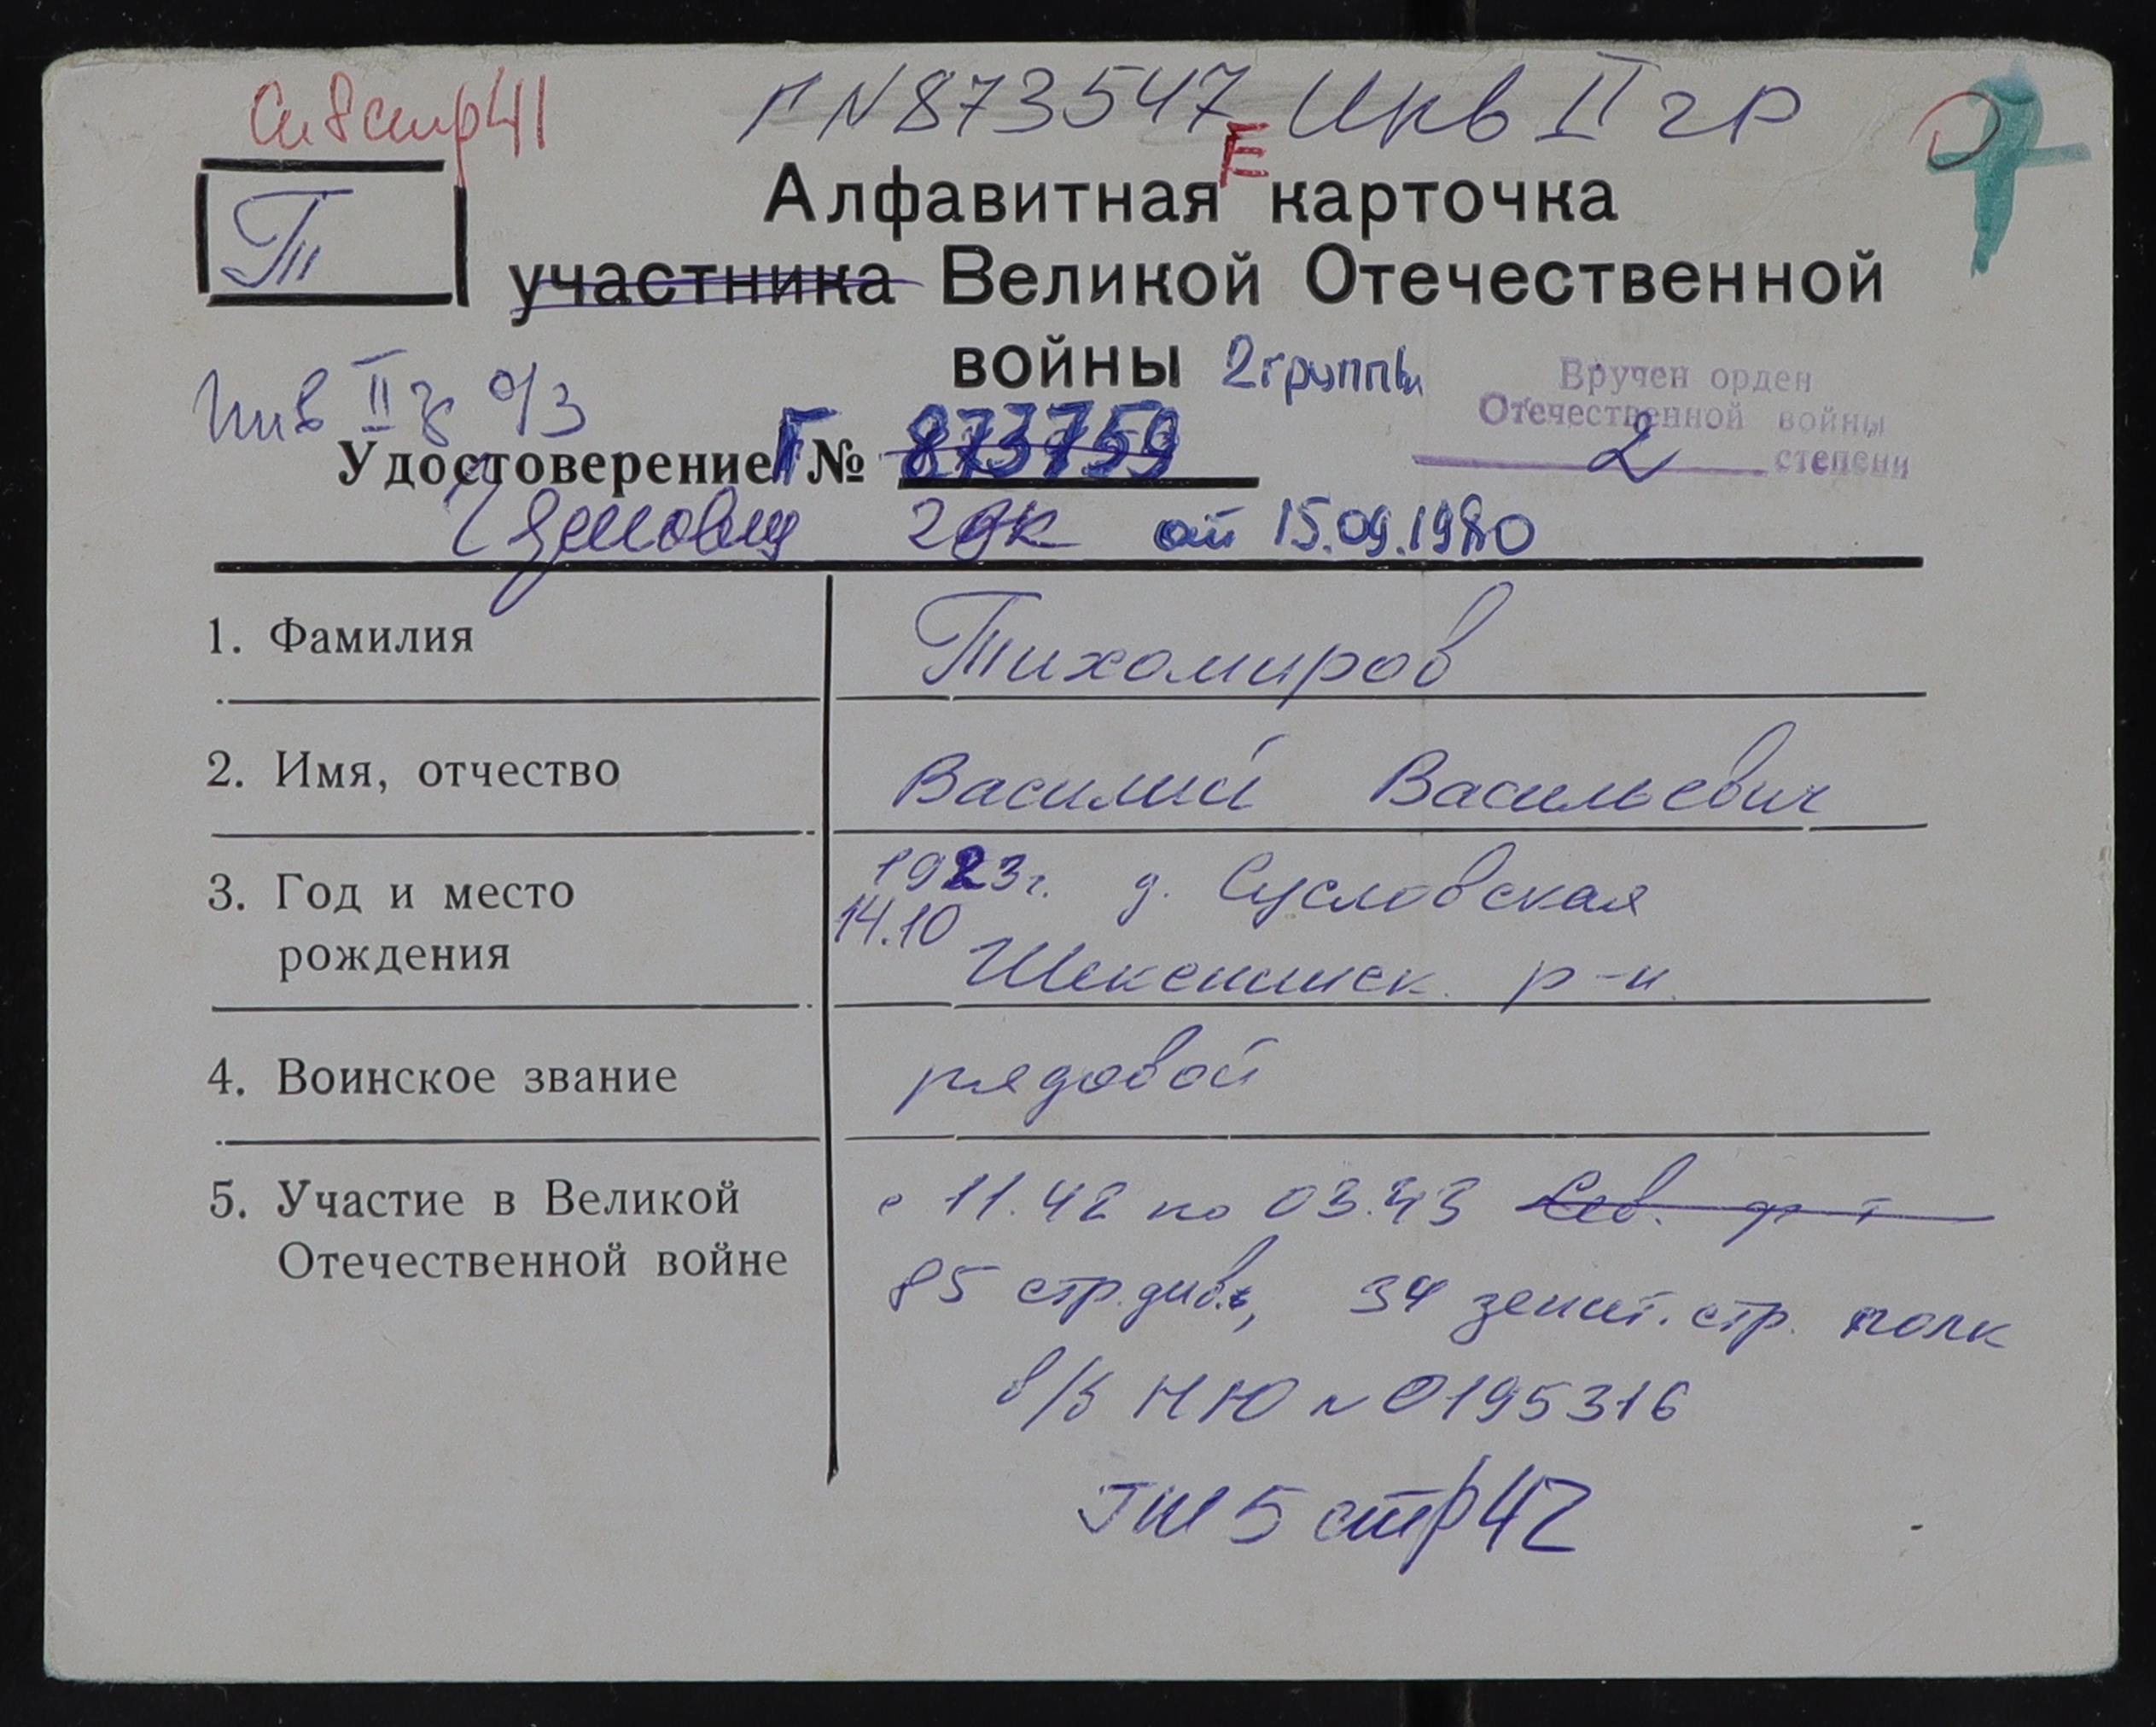 стр 41
Г N 873547 Инв II гр
Е
Т
Алфавитная карточка
участника Великой Отечественной
войны 2 группы
Инв II
Вручен орден
Отечественной войны
2 степени
Удостоверение Г № 873759
от 15.09.1980
1. Фамилия
Тихомиров
2. Имя, отчество
Василий Васильевич
3. Год и место
рождения
1923 г. д. Сусловская
14.10
Шекснинск. р-н.
4. Воинское звание
рядовой
5. Участие в Великой
Отечественной войне
с 11.42 по 03.43 Сев. ф-т
85 стр. див., 34 зенит. стр. полк
в/б НЮ N 0195316
5 стр 42